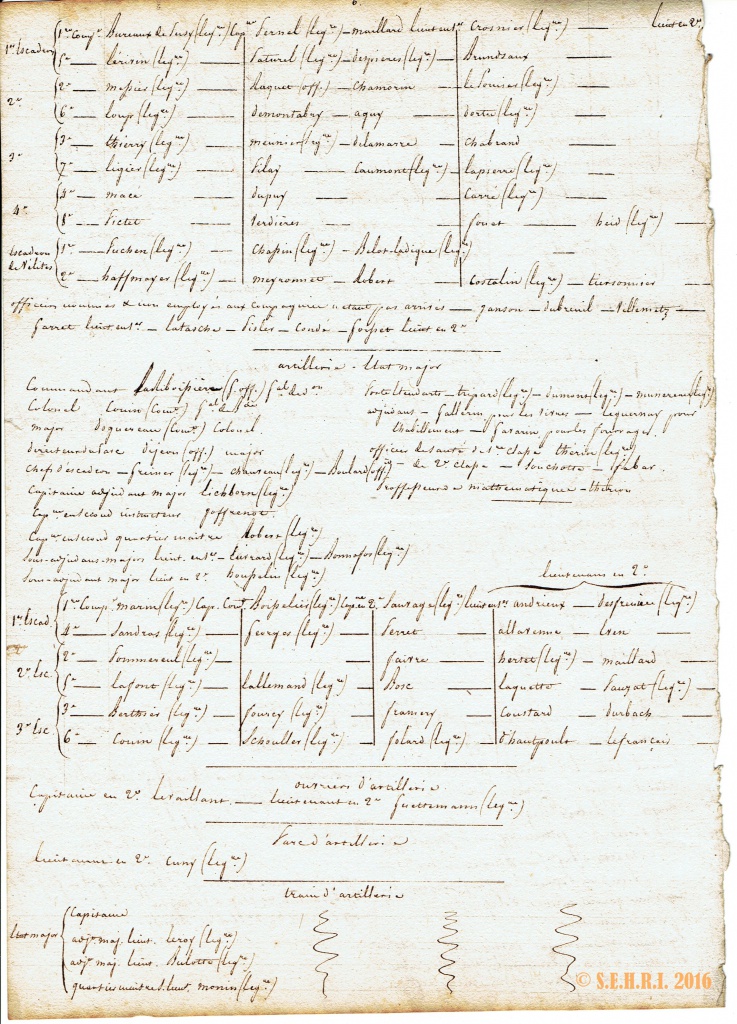 6.
1er Escadron 1re Comp. Bureaux de Pusy (leg.re) Cap.ne Pernel (leg.re) — maillard lieut en 1er Crosnier (leg.re) — lieut en 2e
5e — (leg.re) — Paturel (leg.re) — despieres (leg.re) — Brundsaux —
2e 2e — messier (leg.re) — Raquet (off.) — Chamorin — (leg.re) —
6e — loup (leg.re) — demontabry — aguy — (leg.re) —
3e 3e — thierry (leg.re) — meunier (leg.re) — delamarre — Chabrand —
7e — ligier (leg.re) — Pilay — Caumont (leg.re) — lapierre (leg.re) —
4e — mace — dupuy — Carré (leg.re) —
4e 8e — Pictet — Verdières — fouet — heid (leg.re) —
Escadron de Vélites 1re — Fuchen (leg.re) — Chapin (leg.re) — Belot-ladique (leg.re) —
2e — haffmayer (leg.re) — meyronnet — Robert — Costalin (leg.re) — tiersonnier —
officiers nommés & non employés aux Compagnies n'etant pas arrivés — janson — dubreuil — Villemetz —
garret lieut en 1er — latasche — Pisler — Condé — lieut en 2e
artillerie. Etat major
Commandant (G. off.) G.al de don
Colonel Couin (Com.) G.al
major doguereau (Com.) Colonel.
directeur du Parc Dijeon (off.) major
Chefs d'escadron — greiner (leg.re) — chauveau (leg.re) — Boulard (off.)
Capitaine adjudant major Eichborn (leg.re)
Cap.ne en second instructeur goffrenot
Cap.ne en second quartier maitre Robert (leg.re)
Sous-adjudans-majors lieut. en 1er — Evrard (leg.re) — Bonnafos (leg.re)
Sous-adjudant major lieut en 2e houpelin (leg.re)
Porte Etendarts — trepard (leg.re) — dumont (leg.re) — munereau (leg.re)
adjudant — Gallerin pour les vivres — lequernay pour
l'habillement — Gararin pour les fourrages.
officier de santé de 1re Classe therin (leg.re)
— de 2e Classe — Souchotte —
Professeur de mathematique — therion
lieutenans en 2e
1er Escad. 1re Comp. marin (leg.re) Cap. Com. Boispelin (leg.re) Cap. en 2e Sauvage (leg.re) lieut en 1er andrieux — desfrenière (leg.re)
4e — Sandras (leg.re) — georges — Perret — allavenne — Even —
2e Esc. 2e — Pommereul (leg.re) — faivre — herset (leg.re) — maillard —
5e — lafont (leg.re) — Lallemand (leg.re) — Bosc — laguette — Pauzat (leg.re) —
3e Esc. 3e — Berthier (leg.re) — fourcy (leg.re) — framery — Coustard — durbach —
6e — Couin (leg.re) — Schouller (leg.re) — folard (leg.re) — d'hautpoult — lefrançois —
ouvriers d'artillerie
Capitaine en 2e levaillant — lieutenant en 2e Guettemann (leg.re)
Parc d'artillerie
lieutenant en 2e Cuny (leg.re)
train d'artillerie
Etat major Capitaine
adj.t maj. lieut. leroy (leg.re)
adj.t maj. lieut. Bulotte (leg.re)
quartier maitre S. lieut. monin (leg.re)
© S.E.H.R.I. 2016